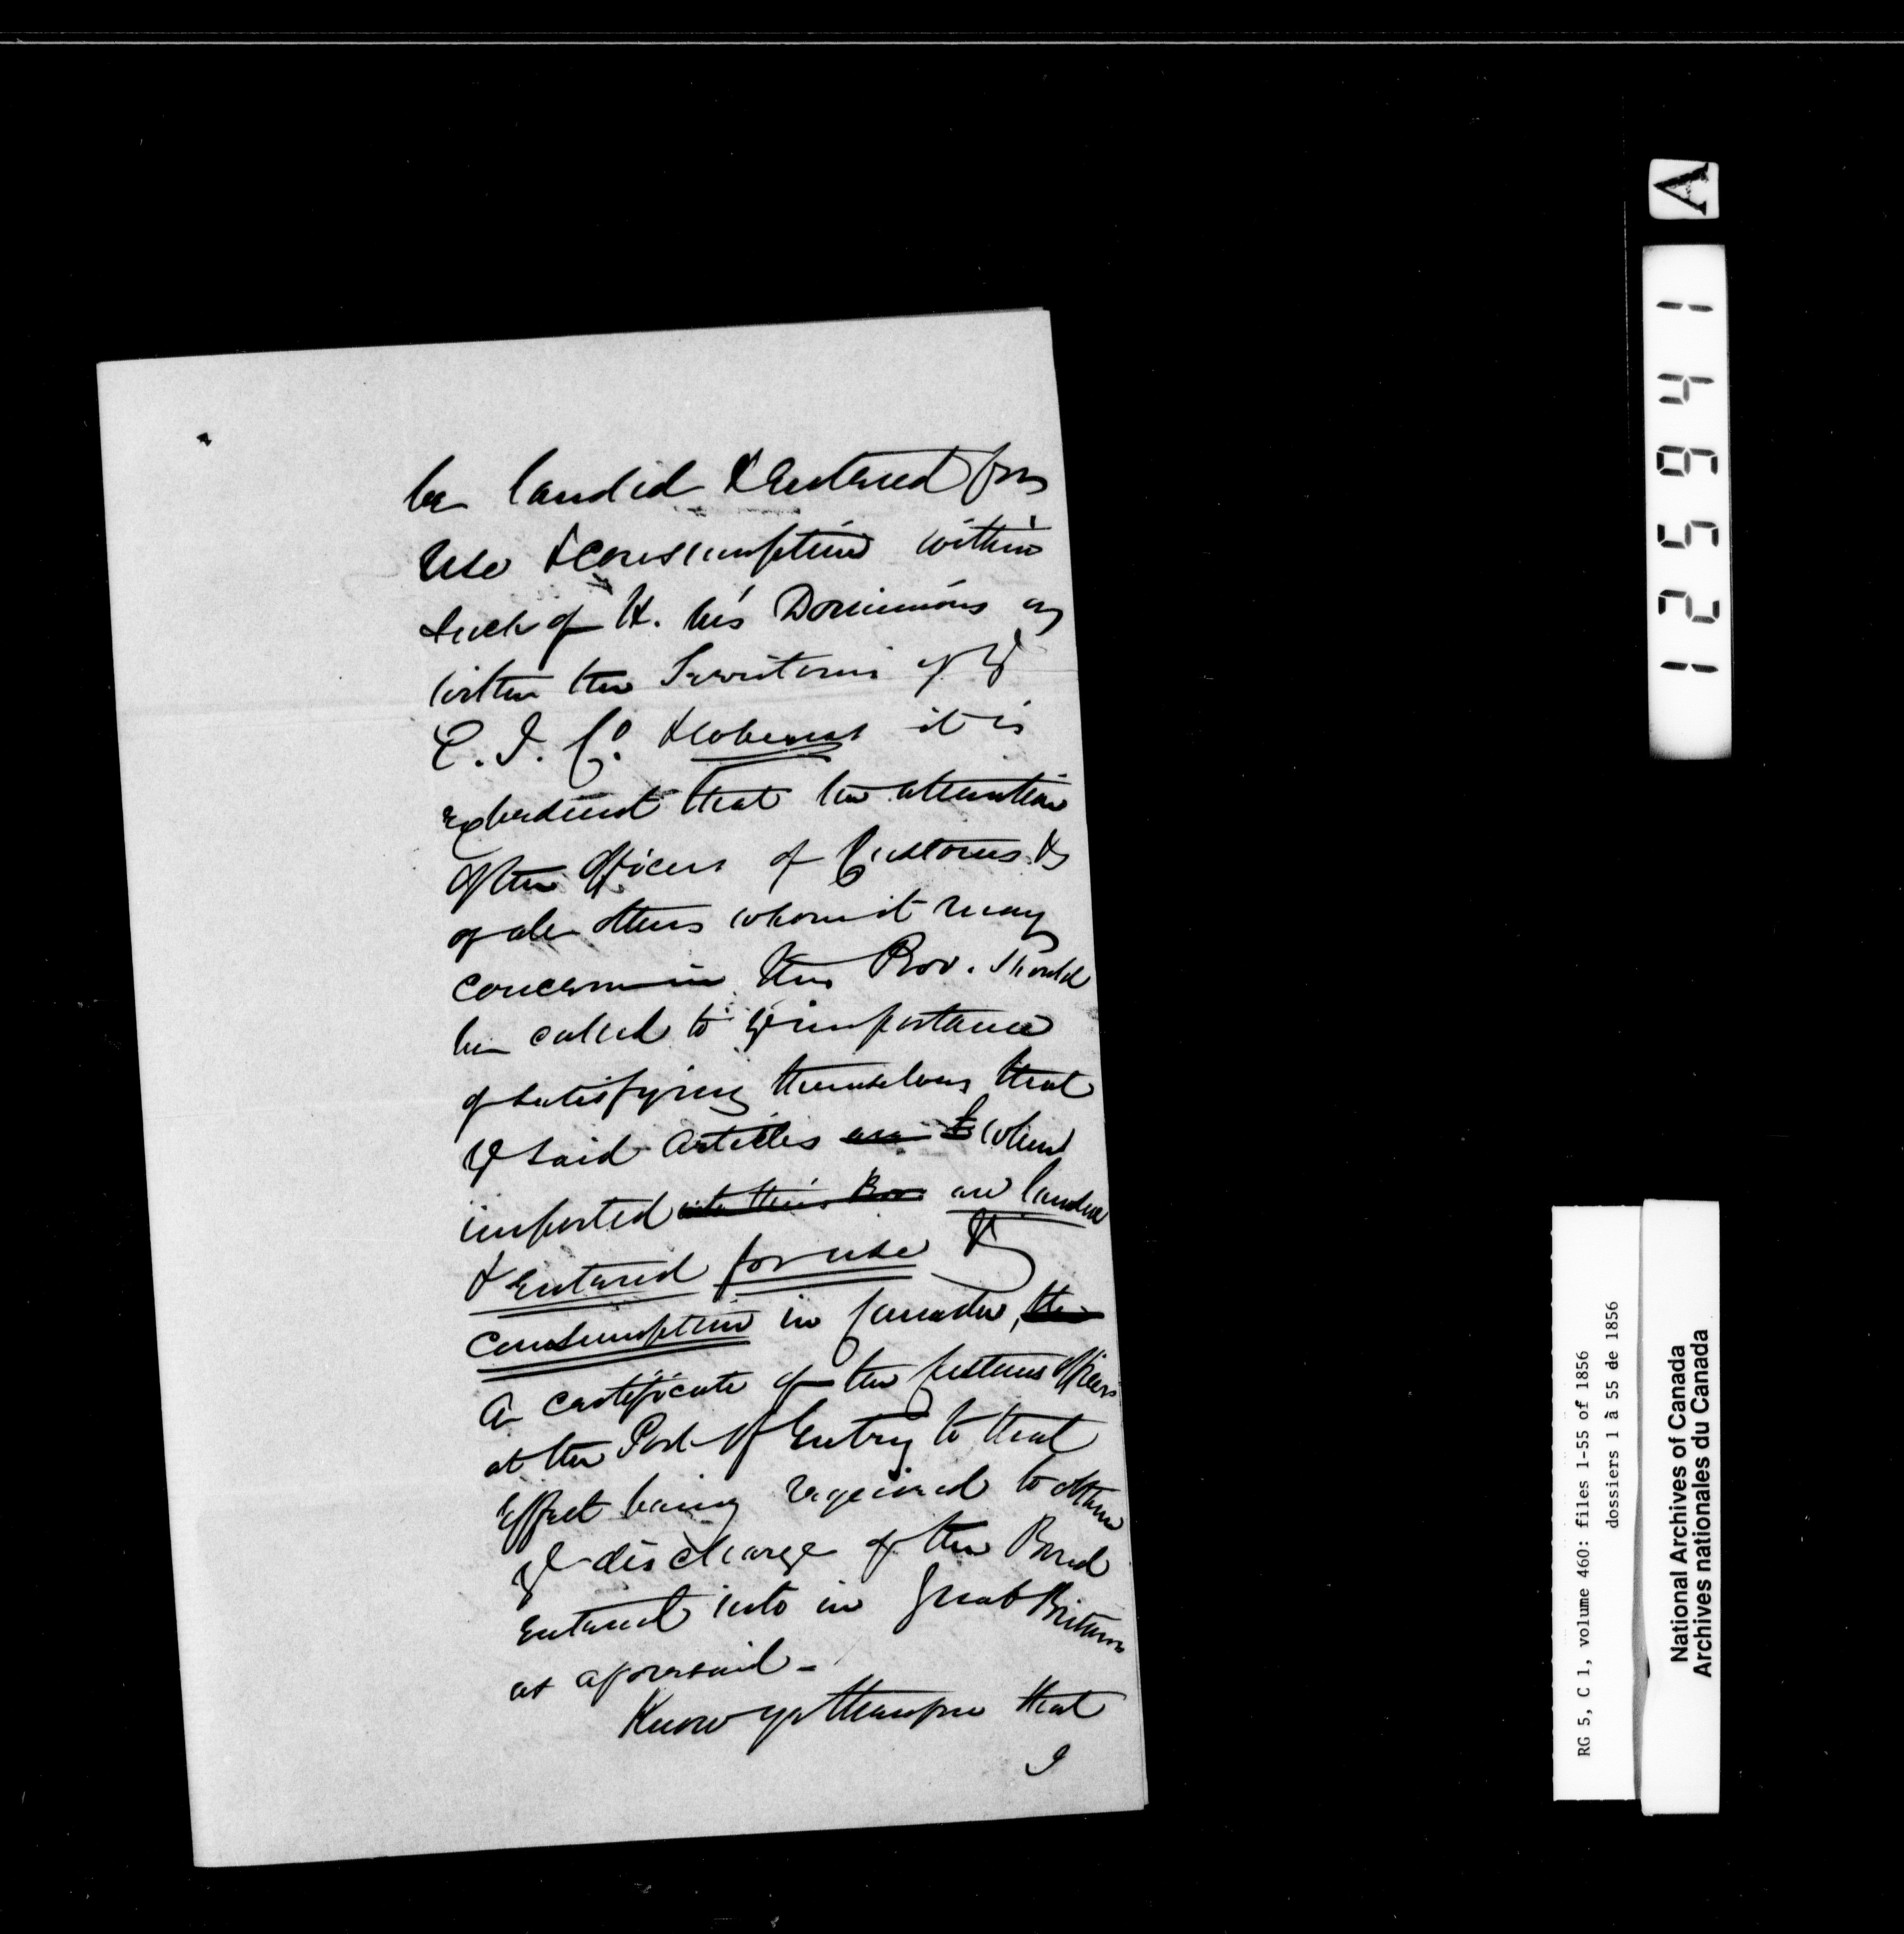 be landed & Entered for
Use & consumption within
such of H. M's Dominions or
within the Territories of ye
E. I. Co. & whereas it is
expedient that the attention
of the Officers of Customs &
of all others whom it may
concern in this Prov. should
be called to ye importance
of satisfying themselves that
ye said Articles are when
imported into this Prov are landed
& Entered for use &
consumption in Canada, the
a certificate of the Customs Officers
at the Port of Entry to that
Effect being required to obtain
ye discharge of the Bond
Entered into in Great Britain
as aforesaid -
Know ye therefore that
I
A
125941
RG 5, C 1, volume 460: files 1-55 of 1856
dossiers 1 à 55 de 1856
National Archives of Canada
Archives nationales du Canada